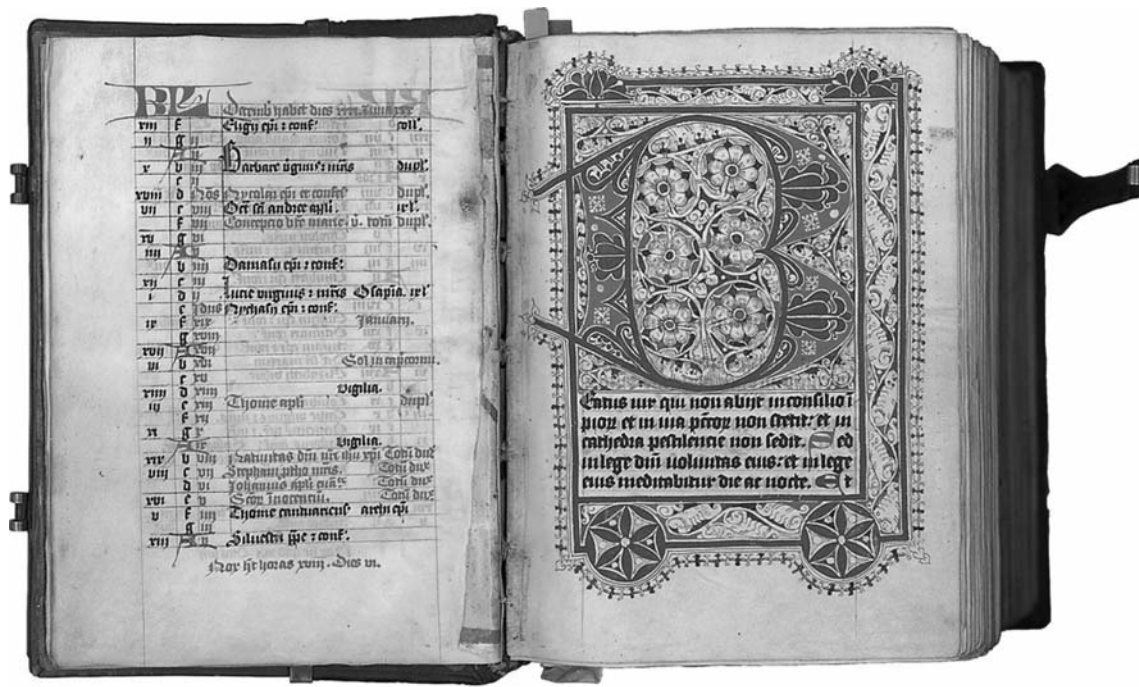 KL Decemb habet dies xxxi. luna xxx
xiii f Eligii epi ⁊ conf. coll'.
ii g iii
A
x b Barbare virginis ⁊ mris dupl'.
c ii
xviii d Nōs Nycolai epi et confes dupl'.
vii e viii Oct sci andree apli. ixl'.
f vii Concepcio bte marie v. dupl'.
xv g vi
iiii A v
b iiii Damasii epi ⁊ conf.
xii c iii
i d ii Lucie virginis ⁊ mris Osapia. ixl'
e Idus Nychasii epi ⁊ conf.
ix f xix Januarii.
g xviii
xvii A xvii
vi b xvi Sol in capcorni.
c xv
xiiii d xiiii vigilia.
iii e xiii Thome apli dupl'
f xii
xi g x
A ix Vigilia.
xix b viii Nativitas dni nri ihu xpi Totū dux
viii c vii Stephani mris. Totū dux
d vi Johannis apli Totū dux
xvi e v Scor Inocentiū. Totū dux
v f iiii Thome cantuariens archi epi
g iii
xiii A ii Silvestri ppe ⁊ conf.
Nox ht horas xviii. Dies vi.
B
Eatus vir qui non abiit in consilio ī
pior et in via pctor non stetit: et in
cathedra pestilencie non sedit. Sed
in lege dni voluntas eius: et in lege
eius meditabitur die ac nocte. Et